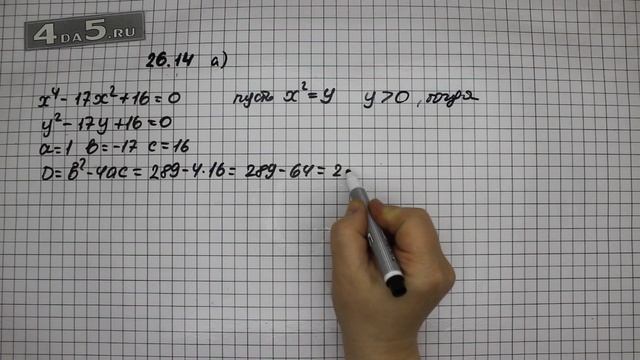 4DA5.RU
26.14 а)
x⁴ - 17x² + 16 = 0 пусть x² = y y > 0, тогда
y² - 17y + 16 = 0
a = 1 b = -17 c = 16
D = b² - 4ac = 289 - 4·16 = 289 - 64 = 2